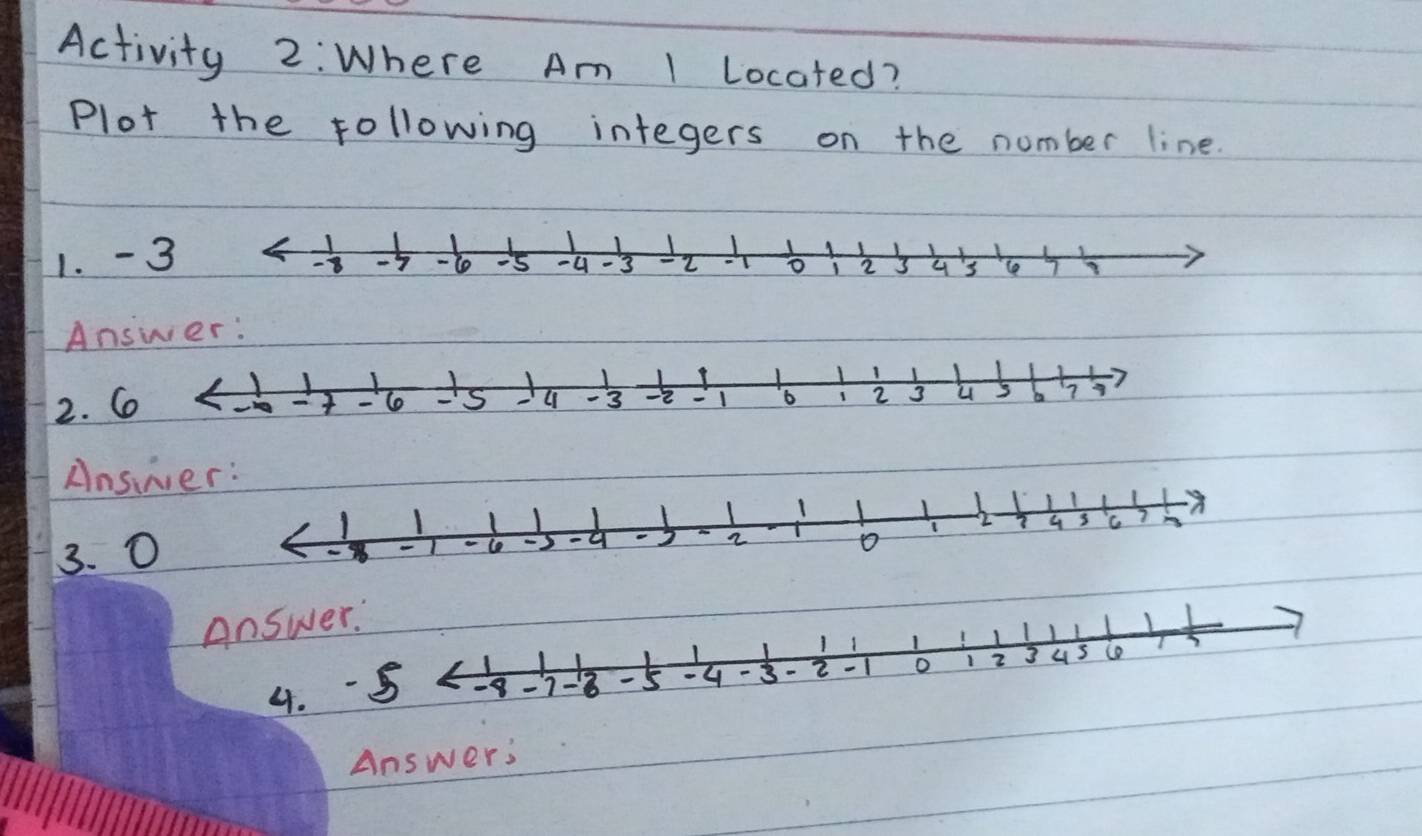 Activity 2: Where Am I Located?
Plot the following integers on the number line.
1. -3 -8 -7 -6 -5 -4 -3 -2 -1 0 1 2 3 4 5 6 7 8
Answer:
2. 6 -8 -7 -6 -5 -4 -3 -2 -1 0 1 2 3 4 5 6 7 8
Answer:
3. 0 -8 -7 -6 -5 -4 -3 -2 -1 0 1 2 3 4 5 6 7 8
Answer:
4. -5 -8 -7 -6 -5 -4 -3 -2 -1 0 1 2 3 4 5 6 7 8
Answer: